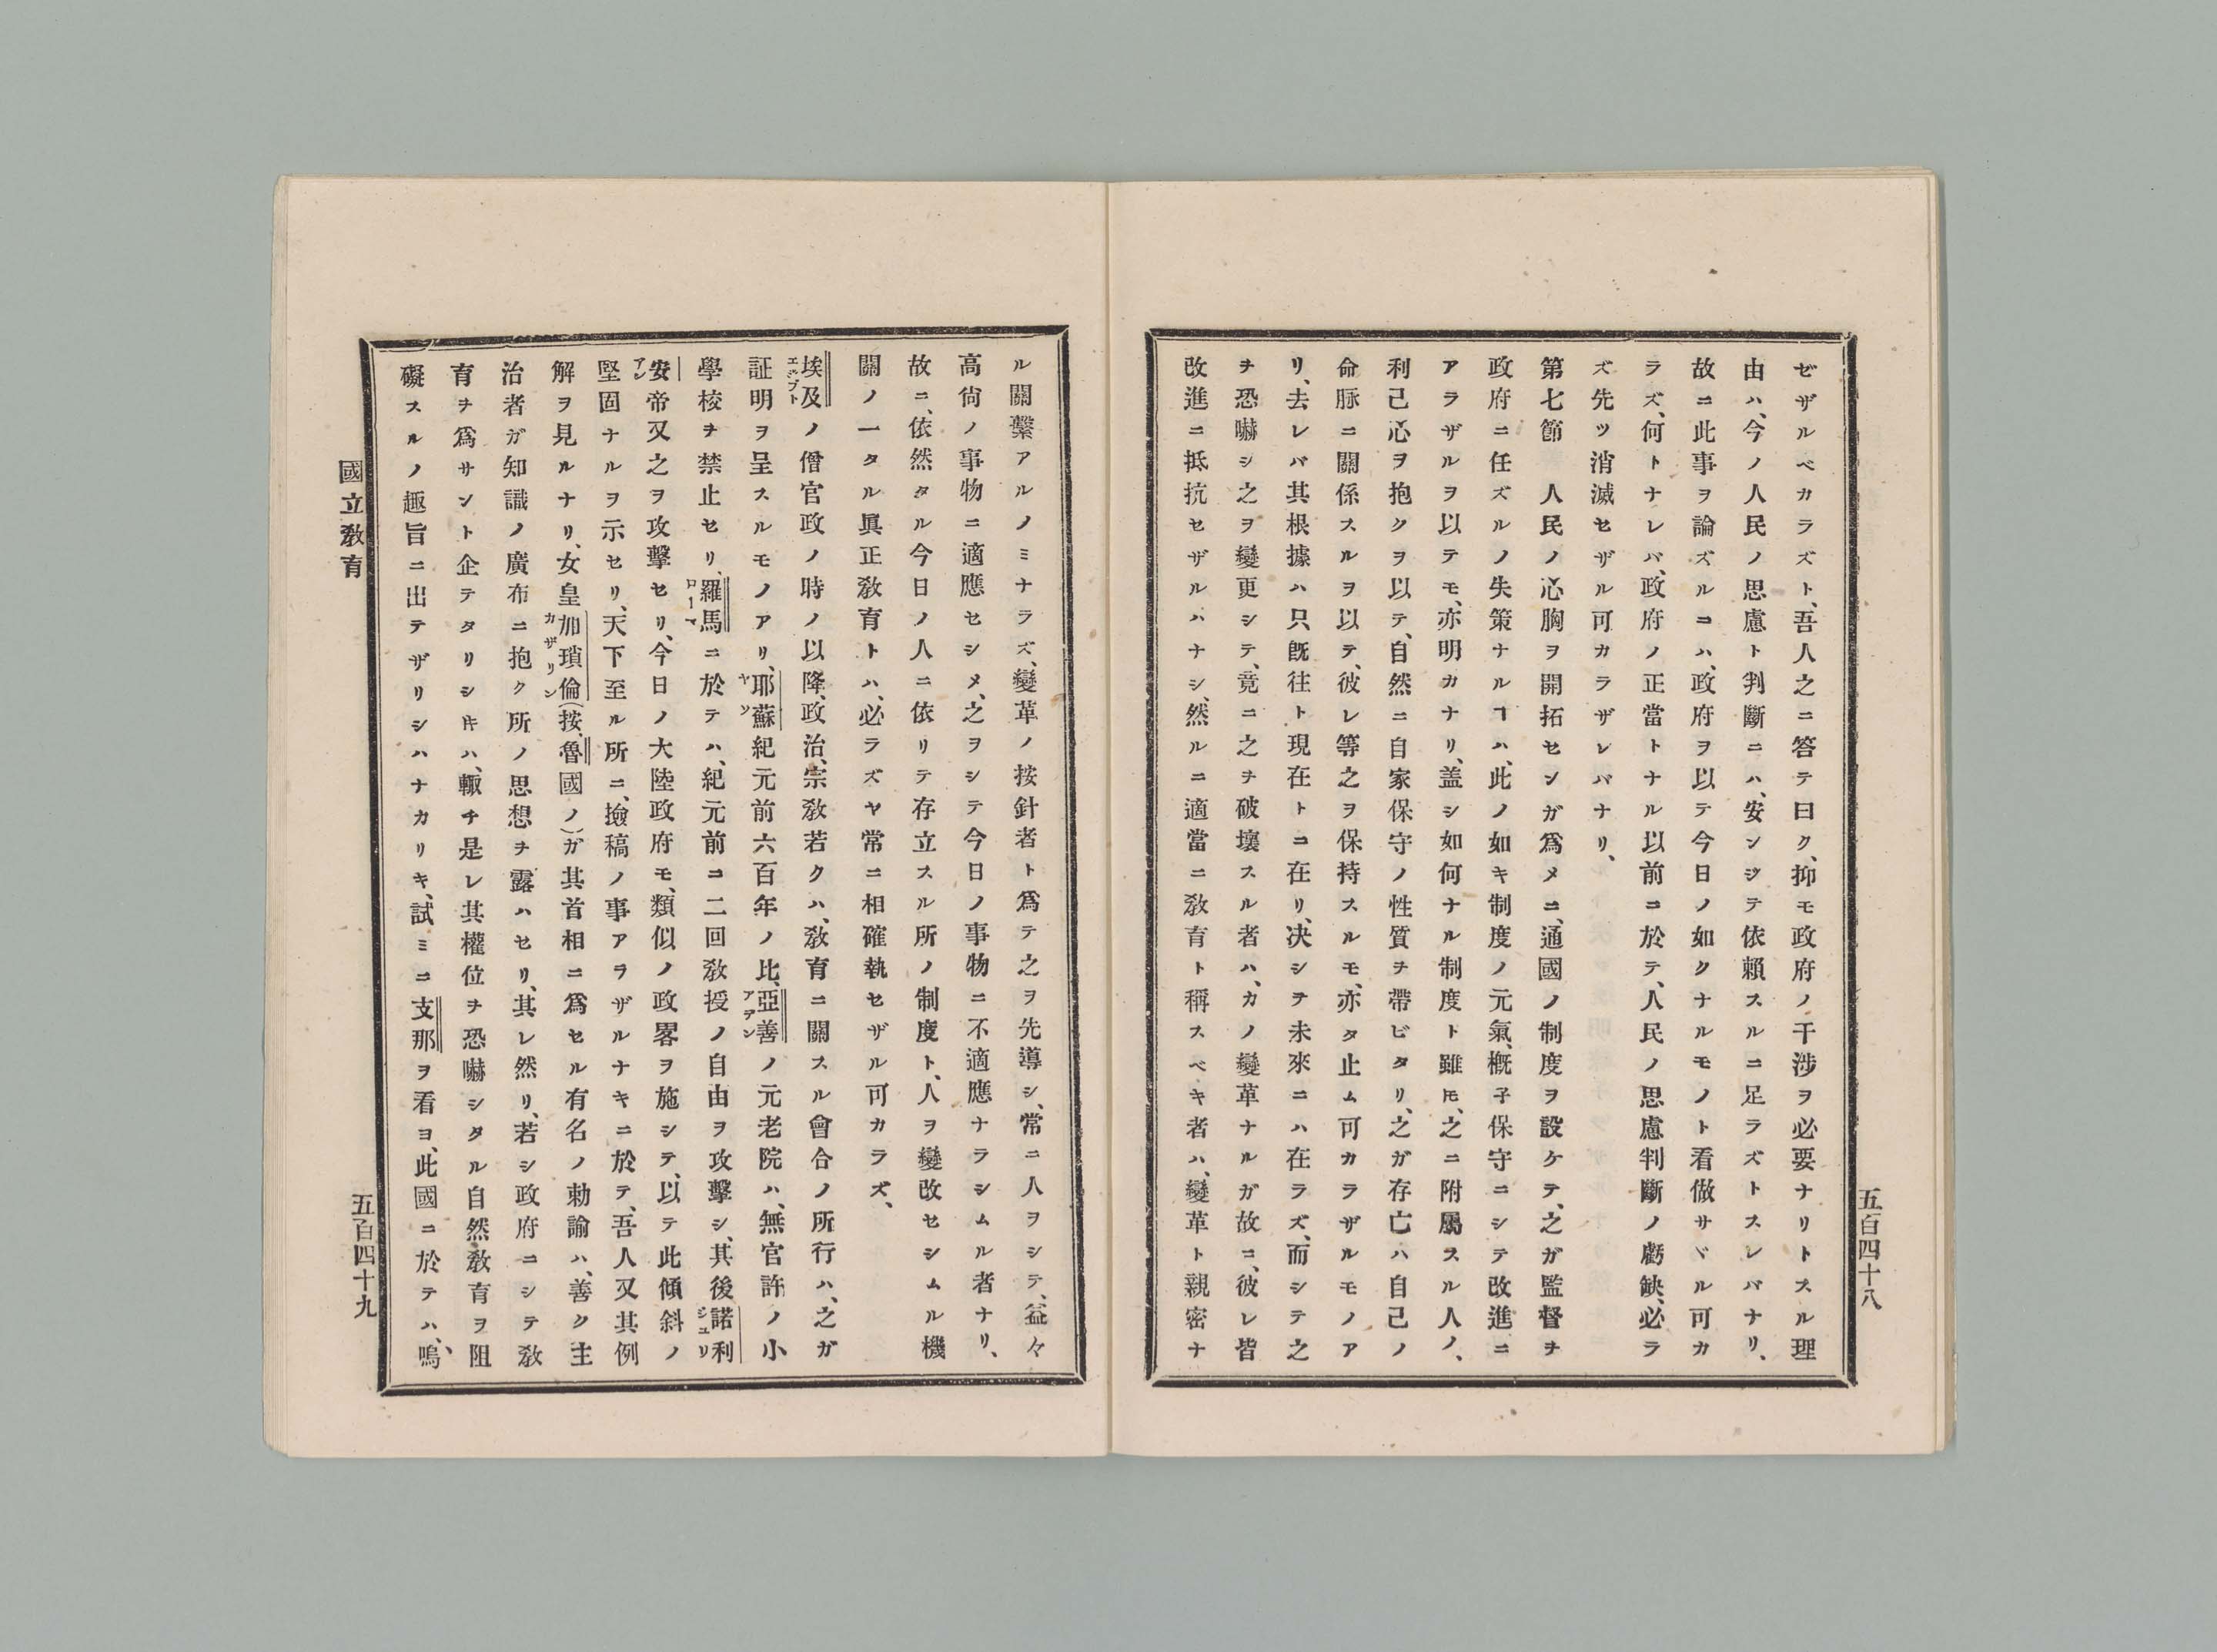 ゼザルベカラズト、吾人之ニ答テ曰ク、抑モ政府ノ干渉ヲ必要ナリトスル理
由ハ、今ノ人民ノ思慮ト判斷ニハ、安ンジテ依賴スルニ足ラズトスレバナリ、
故ニ此事ヲ論ズルニハ、政府ヲ以テ今日ノ如クナルモノト看做サヾル可カ
ラズ、何トナレバ、政府ノ正當トナル以前ニ於テ、人民ノ思慮判斷ノ虧缺、必ラ
ズ先ツ消滅セザル可カラザレバナリ、
第七節　人民ノ心胸ヲ開拓センガ爲メニ、通國ノ制度ヲ設ケテ、之ガ監督ヲ
政府ニ任ズルノ失策ナルヿハ、此ノ如キ制度ノ元氣、概子保守ニシテ改進ニ
アラザルヲ以テモ、亦明カナリ、盖シ如何ナル制度ト雖𪜈、之ニ附屬スル人ノ、
利己心ヲ抱クヲ以テ、自然ニ自家保守ノ性質ヲ帶ビタリ、之ガ存亡ハ自己ノ
命脉ニ關係スルヲ以テ、彼レ等之ヲ保持スルモ、亦タ止ム可カラザルモノア
リ、去レバ其根據ハ只既往ト現在トニ在リ、决シテ未來ニハ在ラズ、而シテ之
ヲ恐嚇シ之ヲ變更シテ、竟ニ之ヲ破壞スル者ハ、カノ變革ナルガ故ニ、彼レ皆
改進ニ抵抗セザルハナシ、然ルニ適當ニ敎育ト稱スベキ者ハ、變革ト親密ナ
五百四十八
ル關繫アルノミナラズ、變革ノ按針者ト爲テ之ヲ先導シ、常ニ人ヲシテ、益々
高尙ノ事物ニ適應セシメ、之ヲシテ今日ノ事物ニ不適應ナラシムル者ナリ、
故ニ、依然タル今日ノ人ニ依リテ存立スル所ノ制度ト、人ヲ變改セシムル機
關ノ一タル眞正敎育トハ、必ラズヤ常ニ相確執セザル可カラズ、
埃及ノ僧官政ノ時ノ以降、政治、宗敎若クハ、敎育ニ關スル會合ノ所行ハ、之ガ
エジプト
証明ヲ呈スルモノアリ、耶蘇紀元前六百年ノ比、亞善ノ元老院ハ、無官許ノ小
ヤソ
アデン
學校ヲ禁止セリ、羅馬ニ於テハ、紀元前ニ二回敎授ノ自由ヲ攻擊シ、其後諾利
ローマ
ジュリ
安帝又之ヲ攻擊セリ、今日ノ大陸政府モ、類似ノ政畧ヲ施シテ、以テ此傾斜ノ
アン
堅固ナルヲ示セリ、天下至ル所ニ、撿稿ノ事アラザルナキニ於テ、吾人又其例
解ヲ見ルナリ、女皇加瑣倫(按、魯國ノ)ガ其首相ニ爲セル有名ノ勅諭ハ、善ク主
カザリン
治者ガ知識ノ廣布ニ抱ク所ノ思想ヲ露ハセリ、其レ然リ、若シ政府ニシテ敎
育ヲ爲サント企テタリシ𪜈ハ、輙チ是レ其權位ヲ恐嚇シタル自然敎育ヲ阻
礙スルノ趣旨ニ出テザリシハナカリキ、試ミニ支那ヲ看ヨ、此國ニ於テハ、嗚
國立敎育
五百四十九